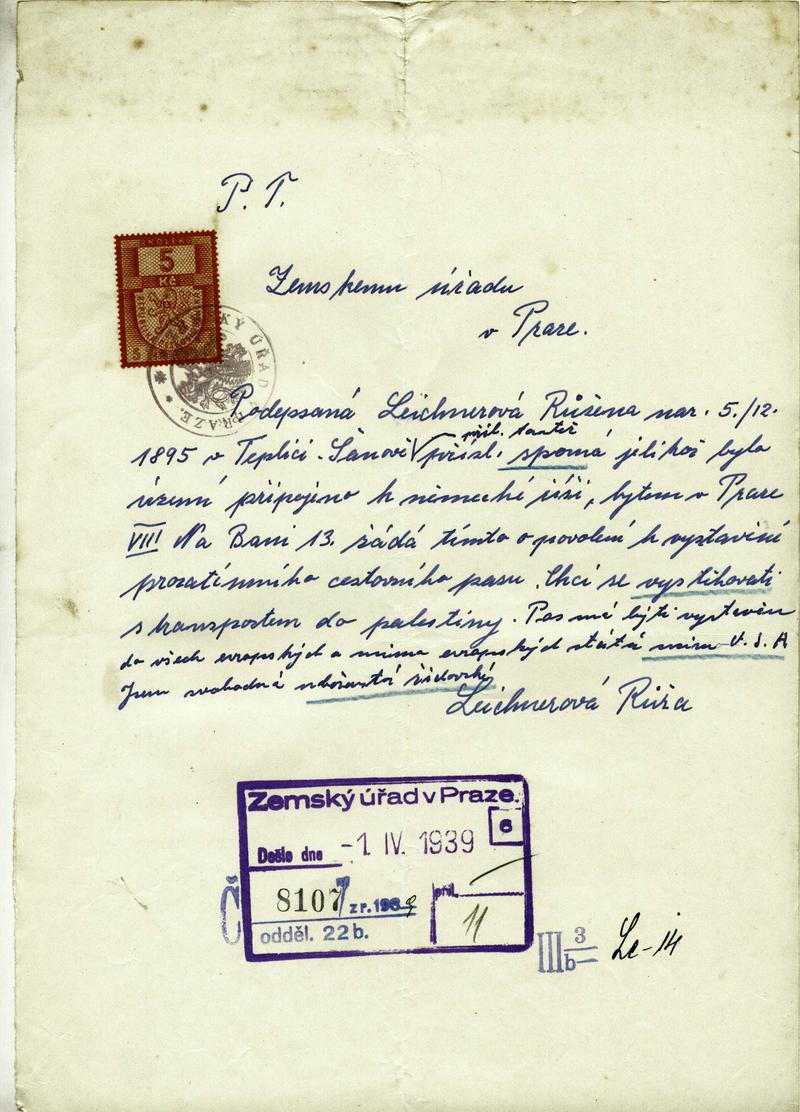 P. T.
5
Kč
Zemskemu úřadu
v Praze.
Podepsaná Leichnerová Růžena nar. 5./12.
1895 v Teplici-Šanově přísl. sporná jelikož bylo
území připojeno k německé říši, bytem v Praze
VIII Na Bani 13. žádá tímto o povolení k vystavení
prozatímního cestovního pasu. Chci se vystihovati
s transportem do palestiny. Pas má býti vystaven
do všech evropských a mimo evropských států mimo U.S.A
Jsem svobodná náboženství židovské
Leichnerová Růža
Zemský úřad v Praze.
6
Došlo dne -1. IV. 1939
Č 8107 z r. 1939 příl.
odděl. 22 b. 11
III 3 Le-14
b